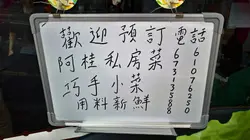 歡迎預訂電話
阿桂私房菜
巧手小菜
用料新鮮
61076250
67313588